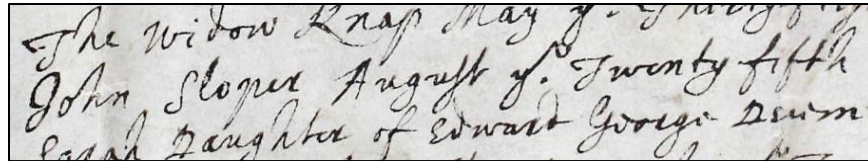 The Widow Knap May ye. Thirty first
John Sloper August ye. Twenty fifth
Sarah Daughter of Edward George Decem